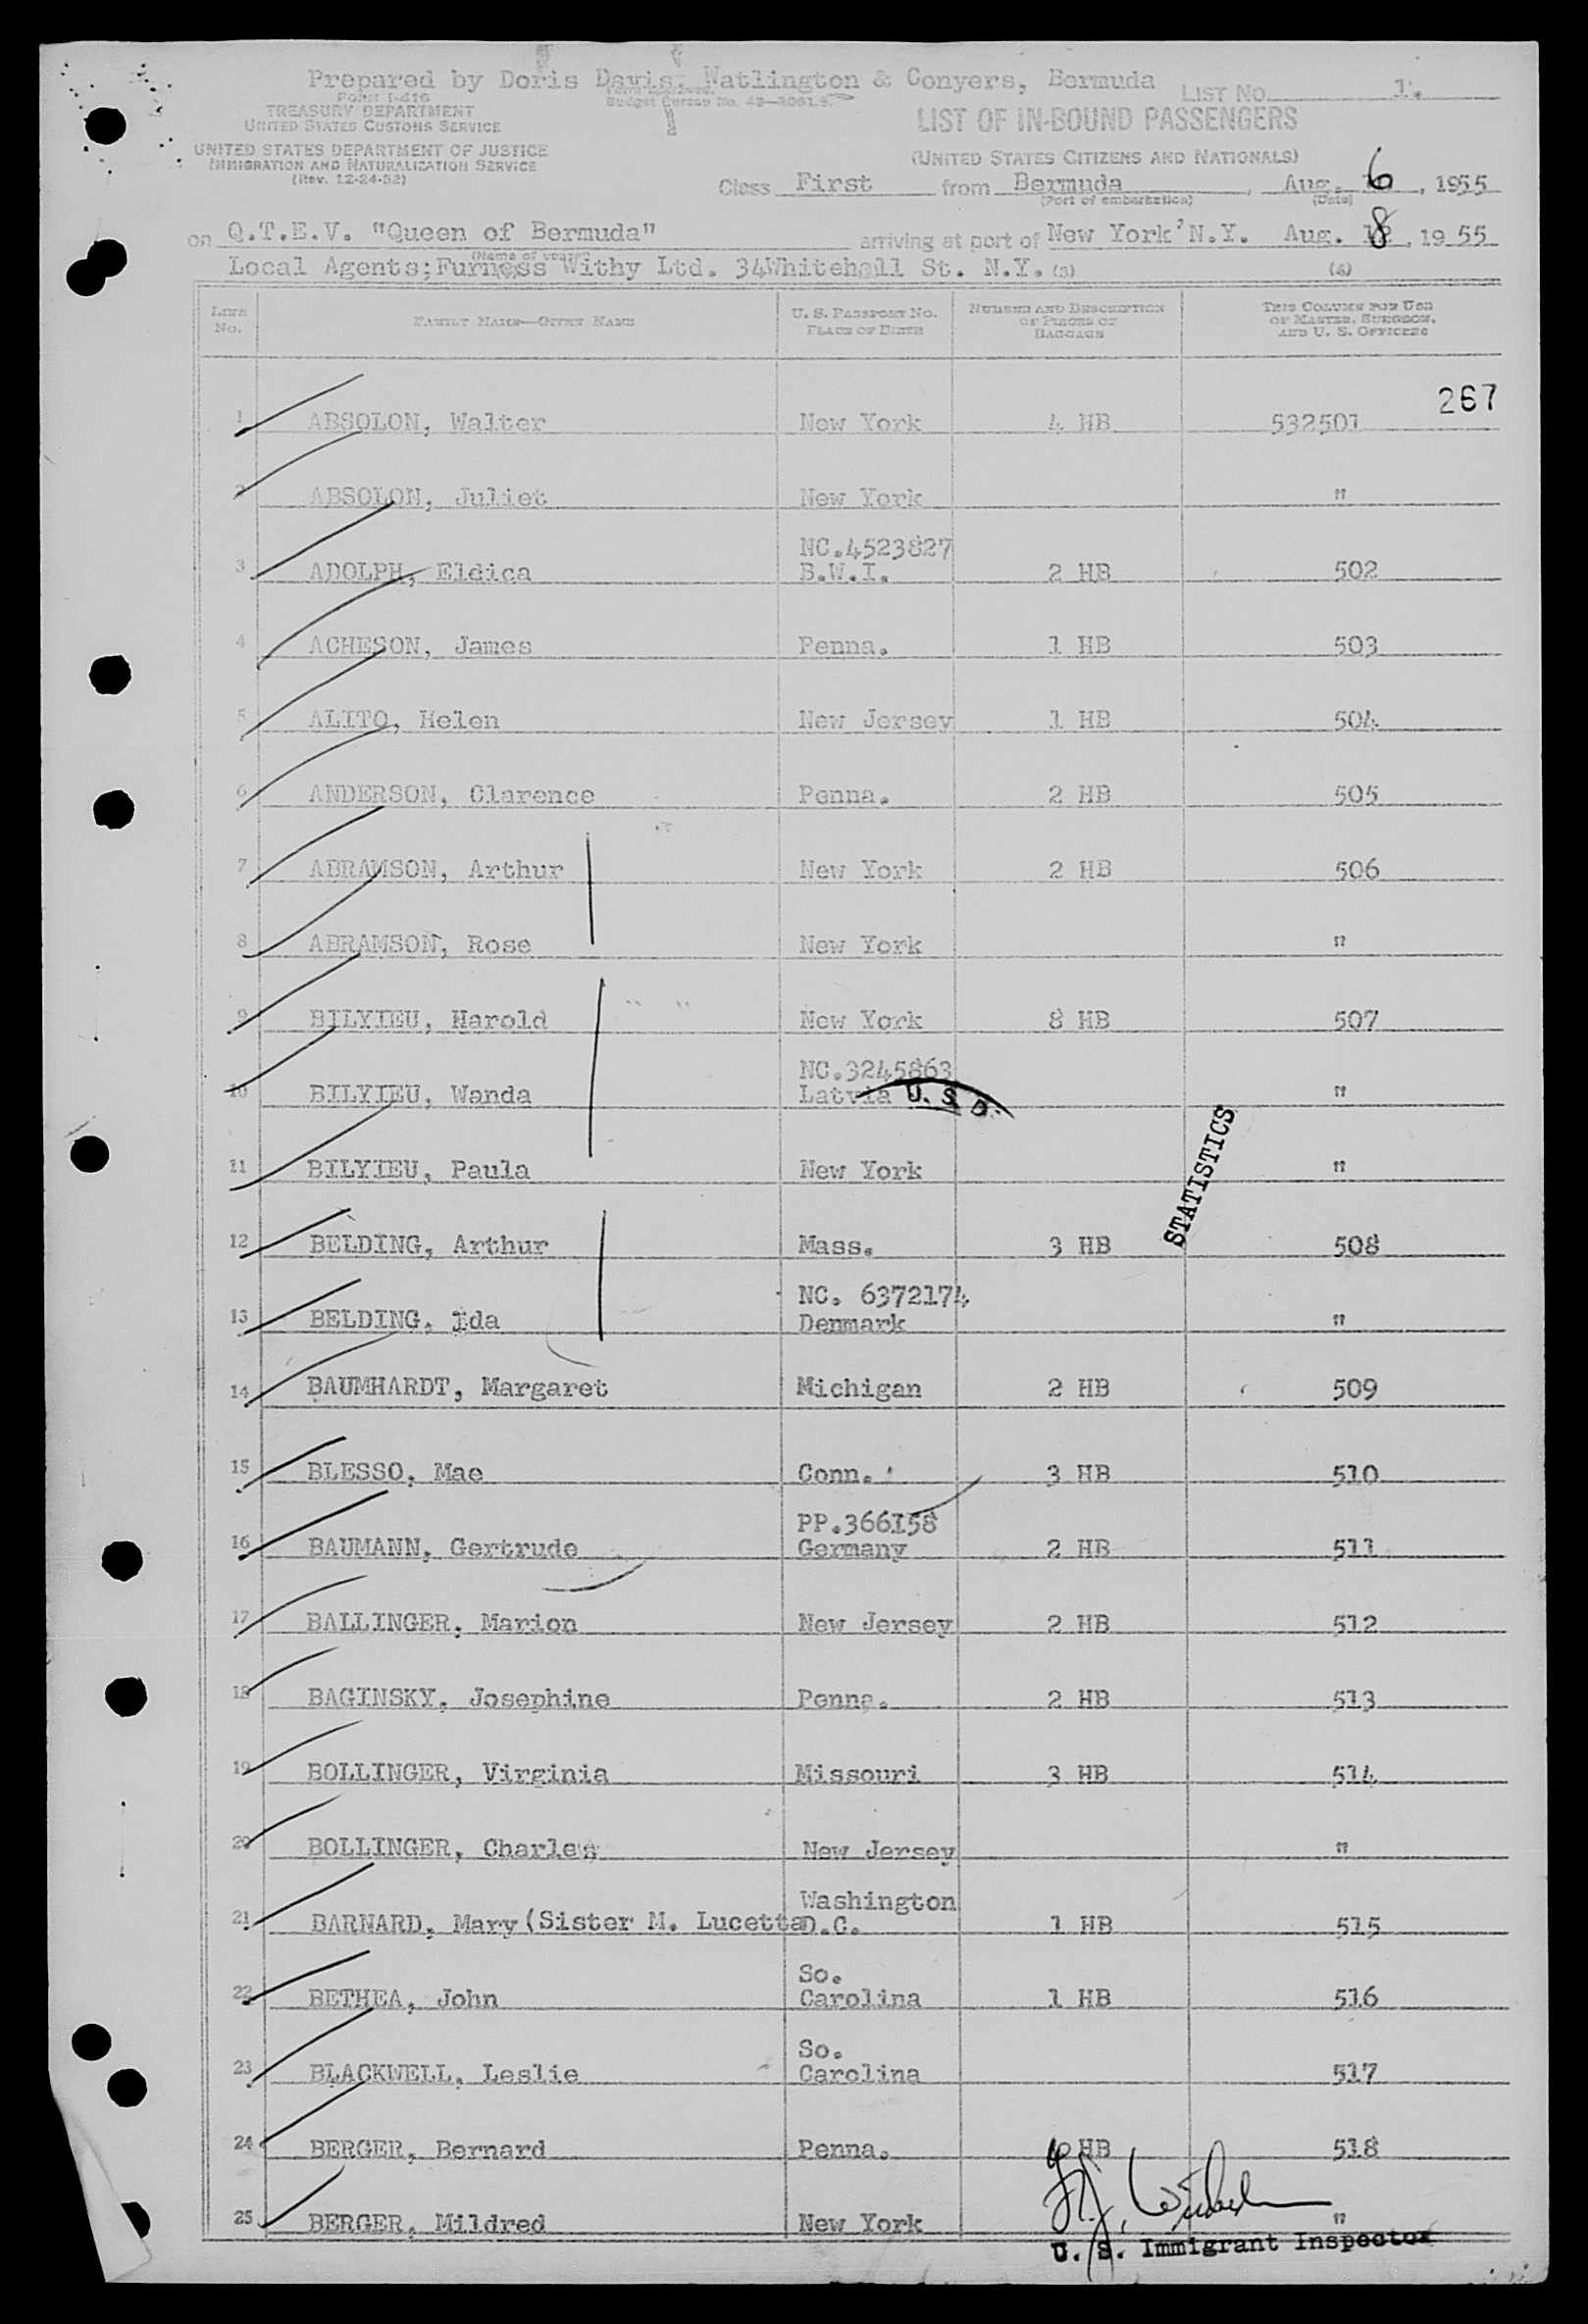 Prepared by Doris Davis, Watlington & Conyers, Bermuda
Form I-416
TREASURY DEPARTMENT
UNITED STATES CUSTOMS SERVICE
UNITED STATES DEPARTMENT OF JUSTICE
IMMIGRATION AND NATURALIZATION SERVICE
(Rev. 12-24-52)
Form approved.
Budget Bureau No.
LIST NO. 1.
LIST OF IN-BOUND PASSENGERS
(UNITED STATES CITIZENS AND NATIONALS)
Class First from Bermuda, Aug. 6, 1955
(Port of embarkation) (Date)
on Q.T.E.V. "Queen of Bermuda" arriving at port of New York'N.Y. Aug. 8, 1955
(Name of vessel)
Local Agents;Furness Withy Ltd. 34Whitehall St. N.Y. (3) (4)
LINE No. FAMILY NAME—GIVEN NAME U. S. PASSPORT NO. PLACE OF BIRTH NUMBER AND DESCRIPTION OF PIECES OF BAGGAGE THIS COLUMN FOR USE OF MASTER, SURGEON, AND U. S. OFFICERS
267
1 ABSOLON, Walter New York 4 HB 532501
2 ABSOLON, Juliet New York "
NC.4523827
3 ADOLPH, Eldica B.W.I. 2 HB 502
4 ACHESON, James Penna. 1 HB 503
5 ALITO, Helen New Jersey 1 HB 504
6 ANDERSON, Clarence Penna. 2 HB 505
7 ABRAMSON, Arthur New York 2 HB 506
8 ABRAMSON, Rose New York "
9 BILYIEU, Harold New York 8 HB 507
NC.3245863
10 BILYIEU, Wanda Latvia U. S. D. "
11 BILYIEU, Paula New York "
STATISTICS
12 BELDING, Arthur Mass. 3 HB 508
NC. 6372174
13 BELDING, Ida Denmark "
14 BAUMHARDT, Margaret Michigan 2 HB 509
15 BLESSO, Mae Conn. 3 HB 510
PP.366158
16 BAUMANN, Gertrude Germany 2 HB 511
17 BALLINGER, Marion New Jersey 2 HB 512
18 BAGINSKY, Josephine Penna. 2 HB 513
19 BOLLINGER, Virginia Missouri 3 HB 514
20 BOLLINGER, Charles New Jersey "
Washington
21 BARNARD, Mary (Sister M. Lucetta D.C. 1 HB 515
So.
22 BETHEA, John Carolina 1 HB 516
So.
23 BLACKWELL, Leslie Carolina 517
24 BERGER, Bernard Penna. HB 518
25 BERGER, Mildred New York "
U. S. Immigrant Inspector